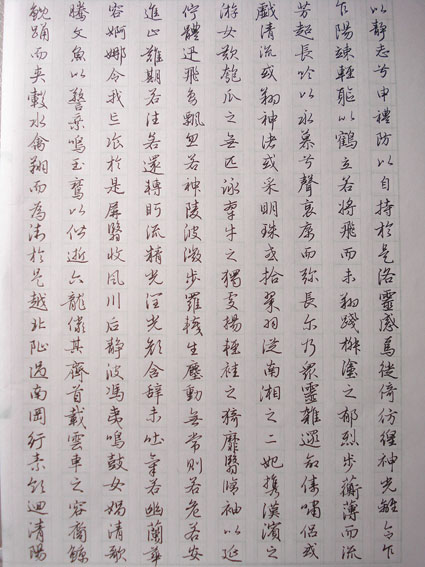 以靜志兮申禮防以自持於是洛靈感焉徙倚彷徨神光離合乍
乍陽竦輕軀以鶴立若將飛而未翔踐椒塗之郁烈步蘅薄而流
芳超長吟以永慕兮聲哀厲而彌長尔乃眾靈雜遝命儔嘯侶或
戲清流或翔神渚或采明珠或拾翠羽從南湘之二妃攜漢濱之
游女歎匏瓜之無匹詠牽牛之獨處揚輕袿之猗靡翳脩袖以延
佇體迅飛鳧飄忽若神陵波微步羅襪生塵動無常則若危若安
進止難期若往若還轉眄流精光潤玉顏含辭未吐氣若幽蘭華
容婀娜令我忘飡於是屏翳收風川后靜波馮夷鳴鼓女媧清歌
騰文魚以警乘鳴玉鸞以偕逝六龍儼其齊首載雲車之容裔鯨
鯢踊而夾轂水禽翔而為衛於是越北沚過南岡紆素領迴清陽